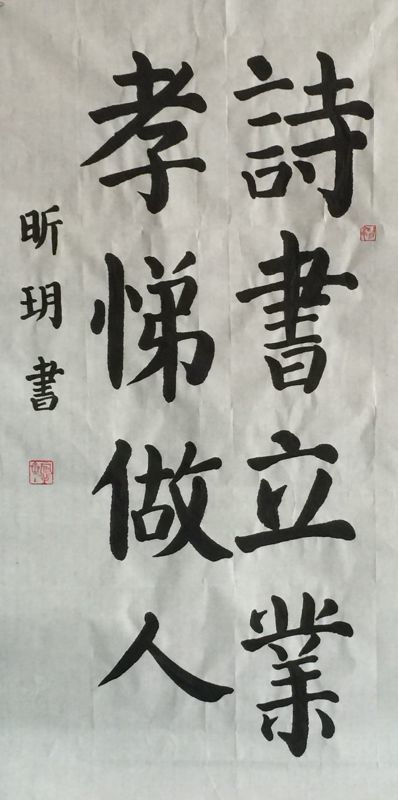 詩書立業
孝悌做人
昕玥書